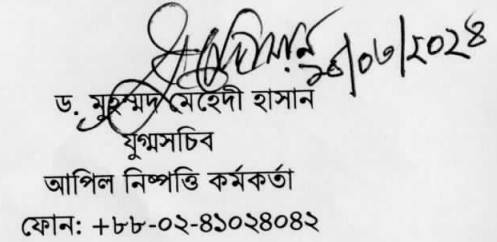 ড. মুহম্মদ মেহেদী হাসান
যুগ্মসচিব
আপিল নিষ্পত্তি কর্মকর্তা
ফোন: +৮৮-০২-৪১০২৪০৪২